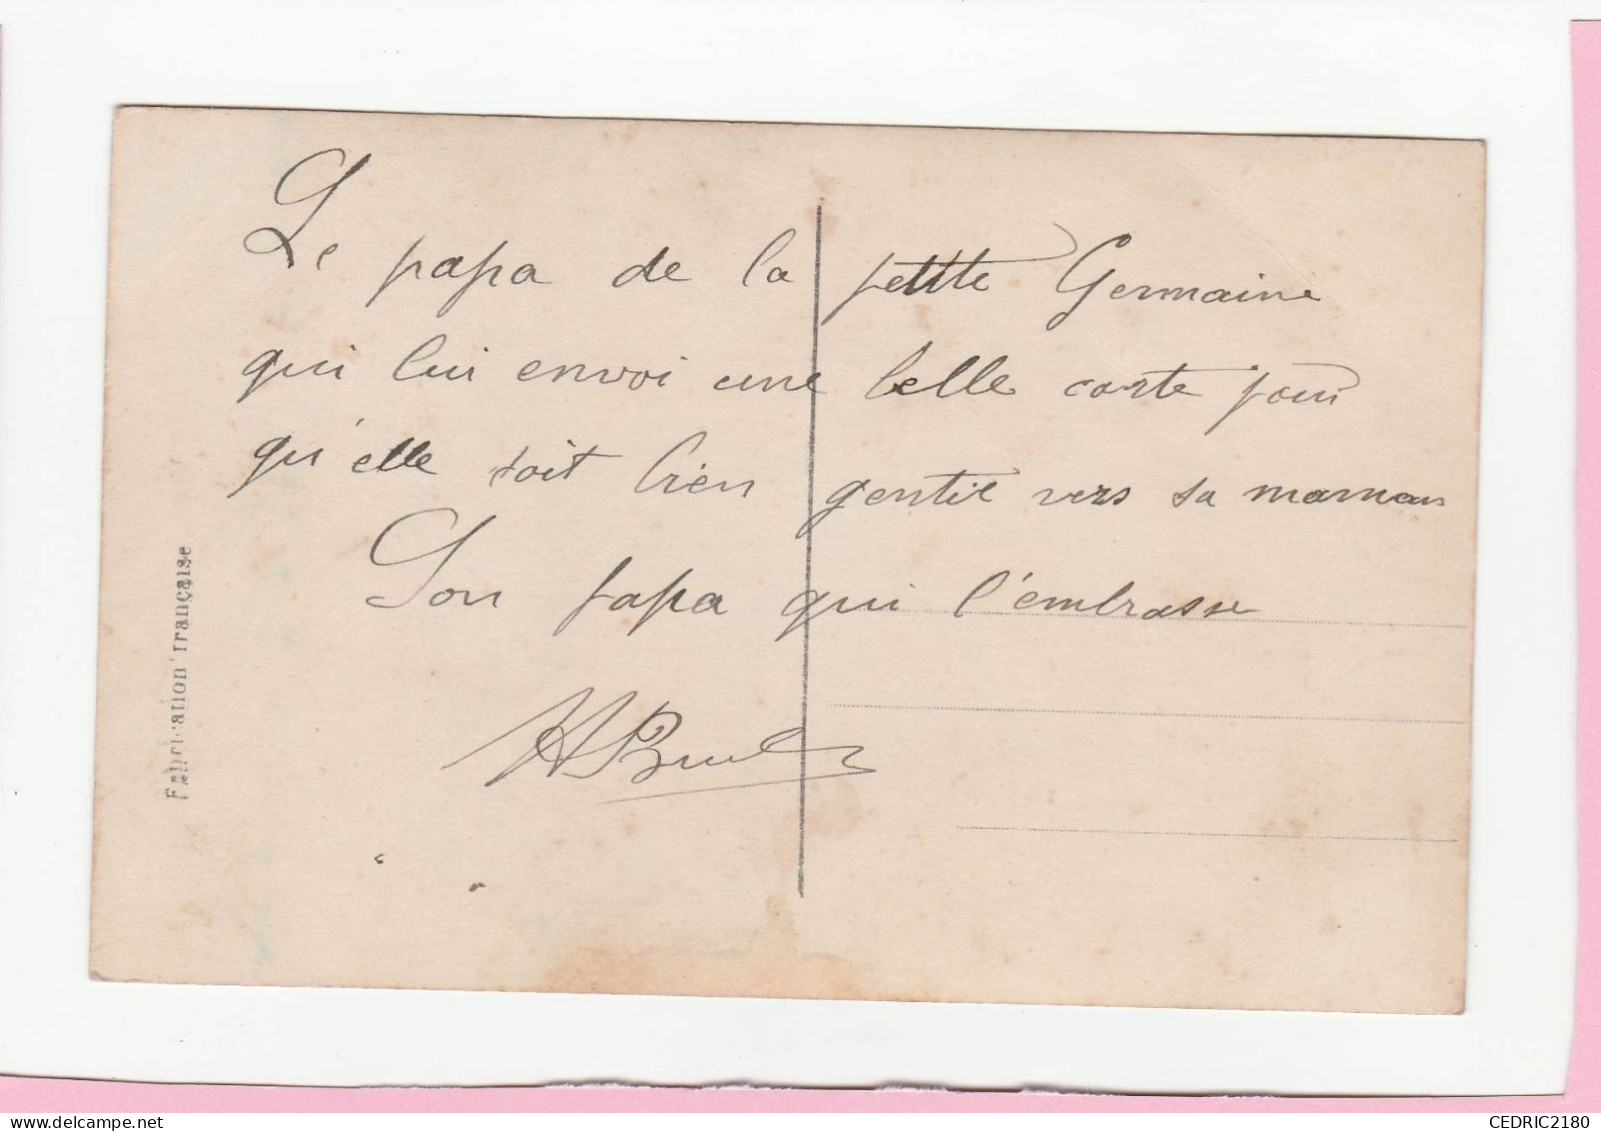 Le papa de la petite Germaine
qui lui envoi une belle carte pour
qu'elle soit bien gentil vers sa maman
Son papa qui l'embrasse
Fabrication française
CEDRIC2180